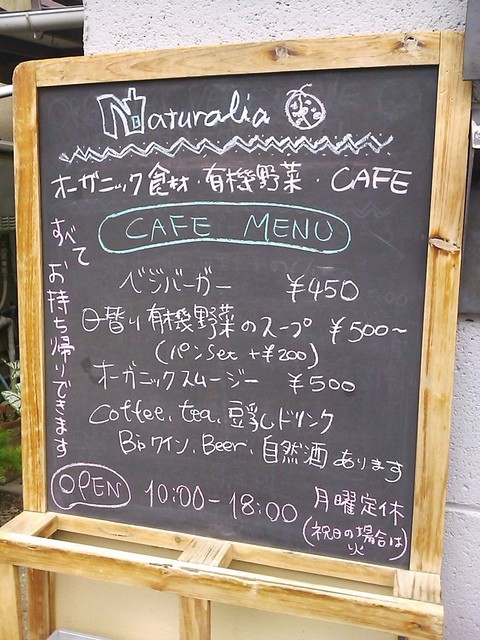 Naturalia
オーガニック食材・有機野菜・CAFE
CAFE MENU
すべてお持ち帰りできます
ベジバーガー ¥450
日替り有機野菜のスープ ¥500~
(パンset +¥200)
オーガニックスムージー ¥500
Coffee、tea、豆乳ドリンク
Bioワイン、Beer、自然酒あります
OPEN 10:00-18:00 月曜定休
(祝日の場合は火)